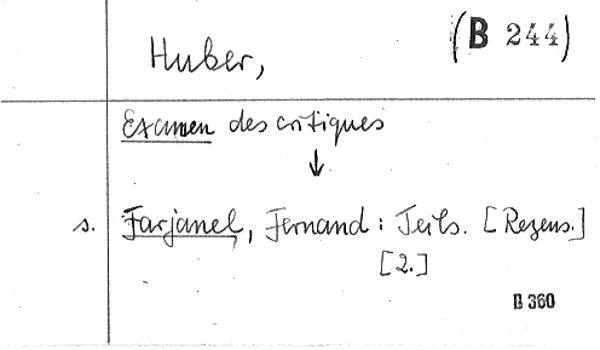 Huber,
(B 244)
Examen des critiques
↓
s. Farjanel, Fernand: Teils. [Rezens.]
[2.]
B 360